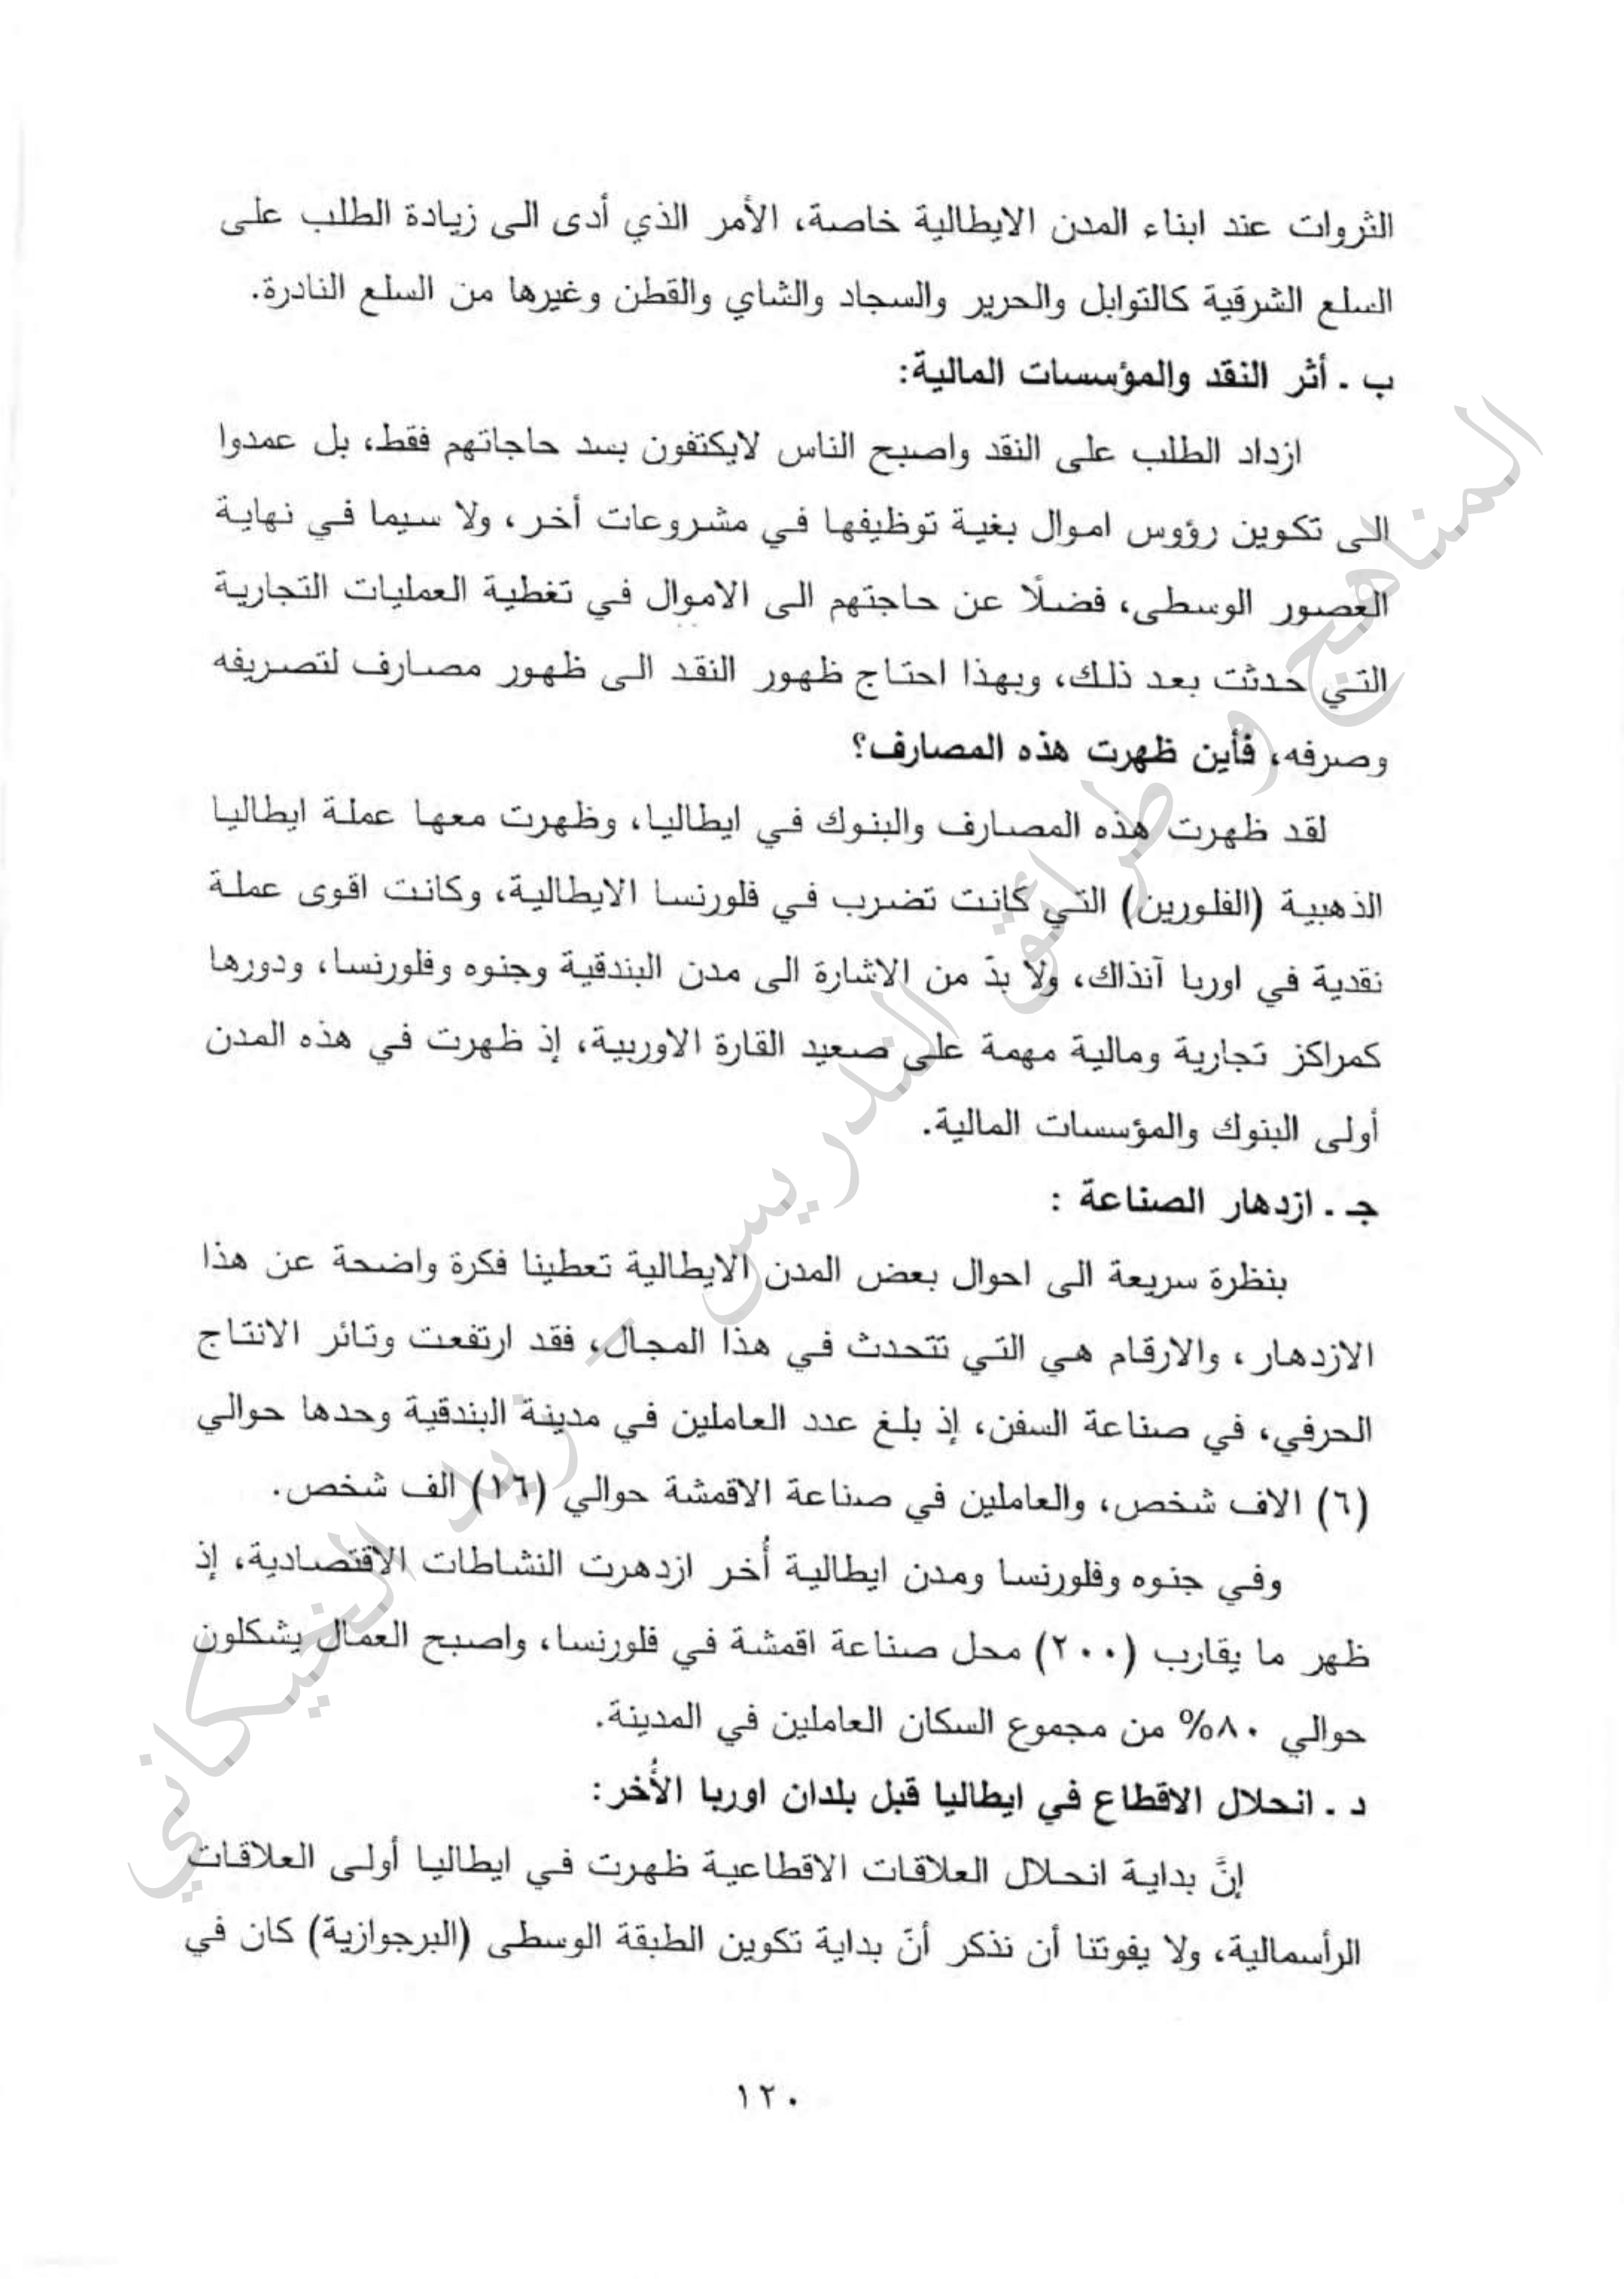 الثروات عند ابناء المدن الايطالية خاصة، الأمر الذي أدى الى زيادة الطلب على
السلع الشرقية كالتوابل والحرير والسجاد والشاي والقطن وغيرها من السلع النادرة.
ب ـ أثر النقد والمؤسسات المالية:
ازداد الطلب على النقد واصبح الناس لايكتفون بسد حاجاتهم فقط، بل عمدوا
الى تكوين رؤوس اموال بغية توظيفها في مشروعات أخر، ولا سيما في نهاية
العصور الوسطى، فضلًا عن حاجتهم الى الاموال في تغطية العمليات التجارية
التي حدثت بعد ذلك، وبهذا احتاج ظهور النقد الى ظهور مصارف لتصريفه
وصرفه، فأين ظهرت هذه المصارف؟
لقد ظهرت هذه المصارف والبنوك في ايطاليا، وظهرت معها عملة ايطاليا
الذهبية (الفلورين) التي كانت تضرب في فلورنسا الايطالية، وكانت اقوى عملة
نقدية في اوربا آنذاك، ولا بدّ من الاشارة الى مدن البندقية وجنوه وفلورنسا، ودورها
كمراكز تجارية ومالية مهمة على صعيد القارة الاوربية، إذ ظهرت في هذه المدن
أولى البنوك والمؤسسات المالية.
جـ ـ ازدهار الصناعة :
بنظرة سريعة الى احوال بعض المدن الايطالية تعطينا فكرة واضحة عن هذا
الازدهار، والارقام هي التي تتحدث في هذا المجال، فقد ارتفعت وتائر الانتاج
الحرفي، في صناعة السفن، إذ بلغ عدد العاملين في مدينة البندقية وحدها حوالي
(٦) الاف شخص، والعاملين في صناعة الاقمشة حوالي (١٦) الف شخص.
وفي جنوه وفلورنسا ومدن ايطالية أُخر ازدهرت النشاطات الاقتصادية، إذ
ظهر ما يقارب (٢٠٠) محل صناعة اقمشة في فلورنسا، واصبح العمال يشكلون
حوالي ٨٠% من مجموع السكان العاملين في المدينة.
د ـ انحلال الاقطاع في ايطاليا قبل بلدان اوربا الأُخر:
إنَّ بداية انحلال العلاقات الاقطاعية ظهرت في ايطاليا أولى العلاقات
الرأسمالية، ولا يفوتنا أن نذكر أنّ بداية تكوين الطبقة الوسطى (البرجوازية) كان في
١٢٠
المناهج وطرائق التدريس - زيد الخيكاني